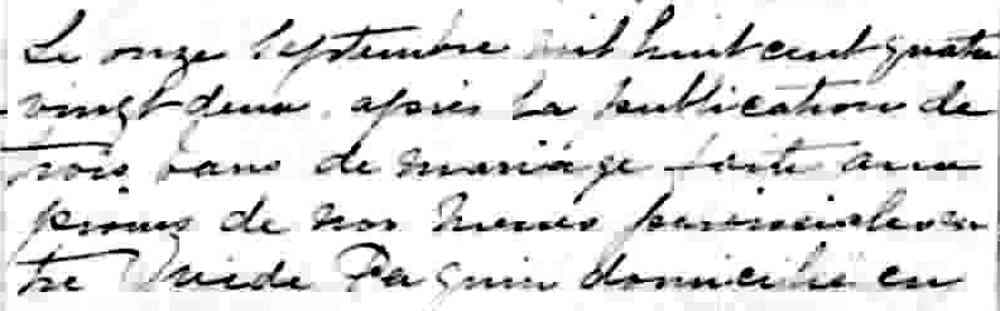 Le onze Septembre mil huit cent quatre
vingt deux, après la publication de
trois bans de mariage faite aux
prones de nos messes paroissiales en
tre Ovide Paquin domicilié en